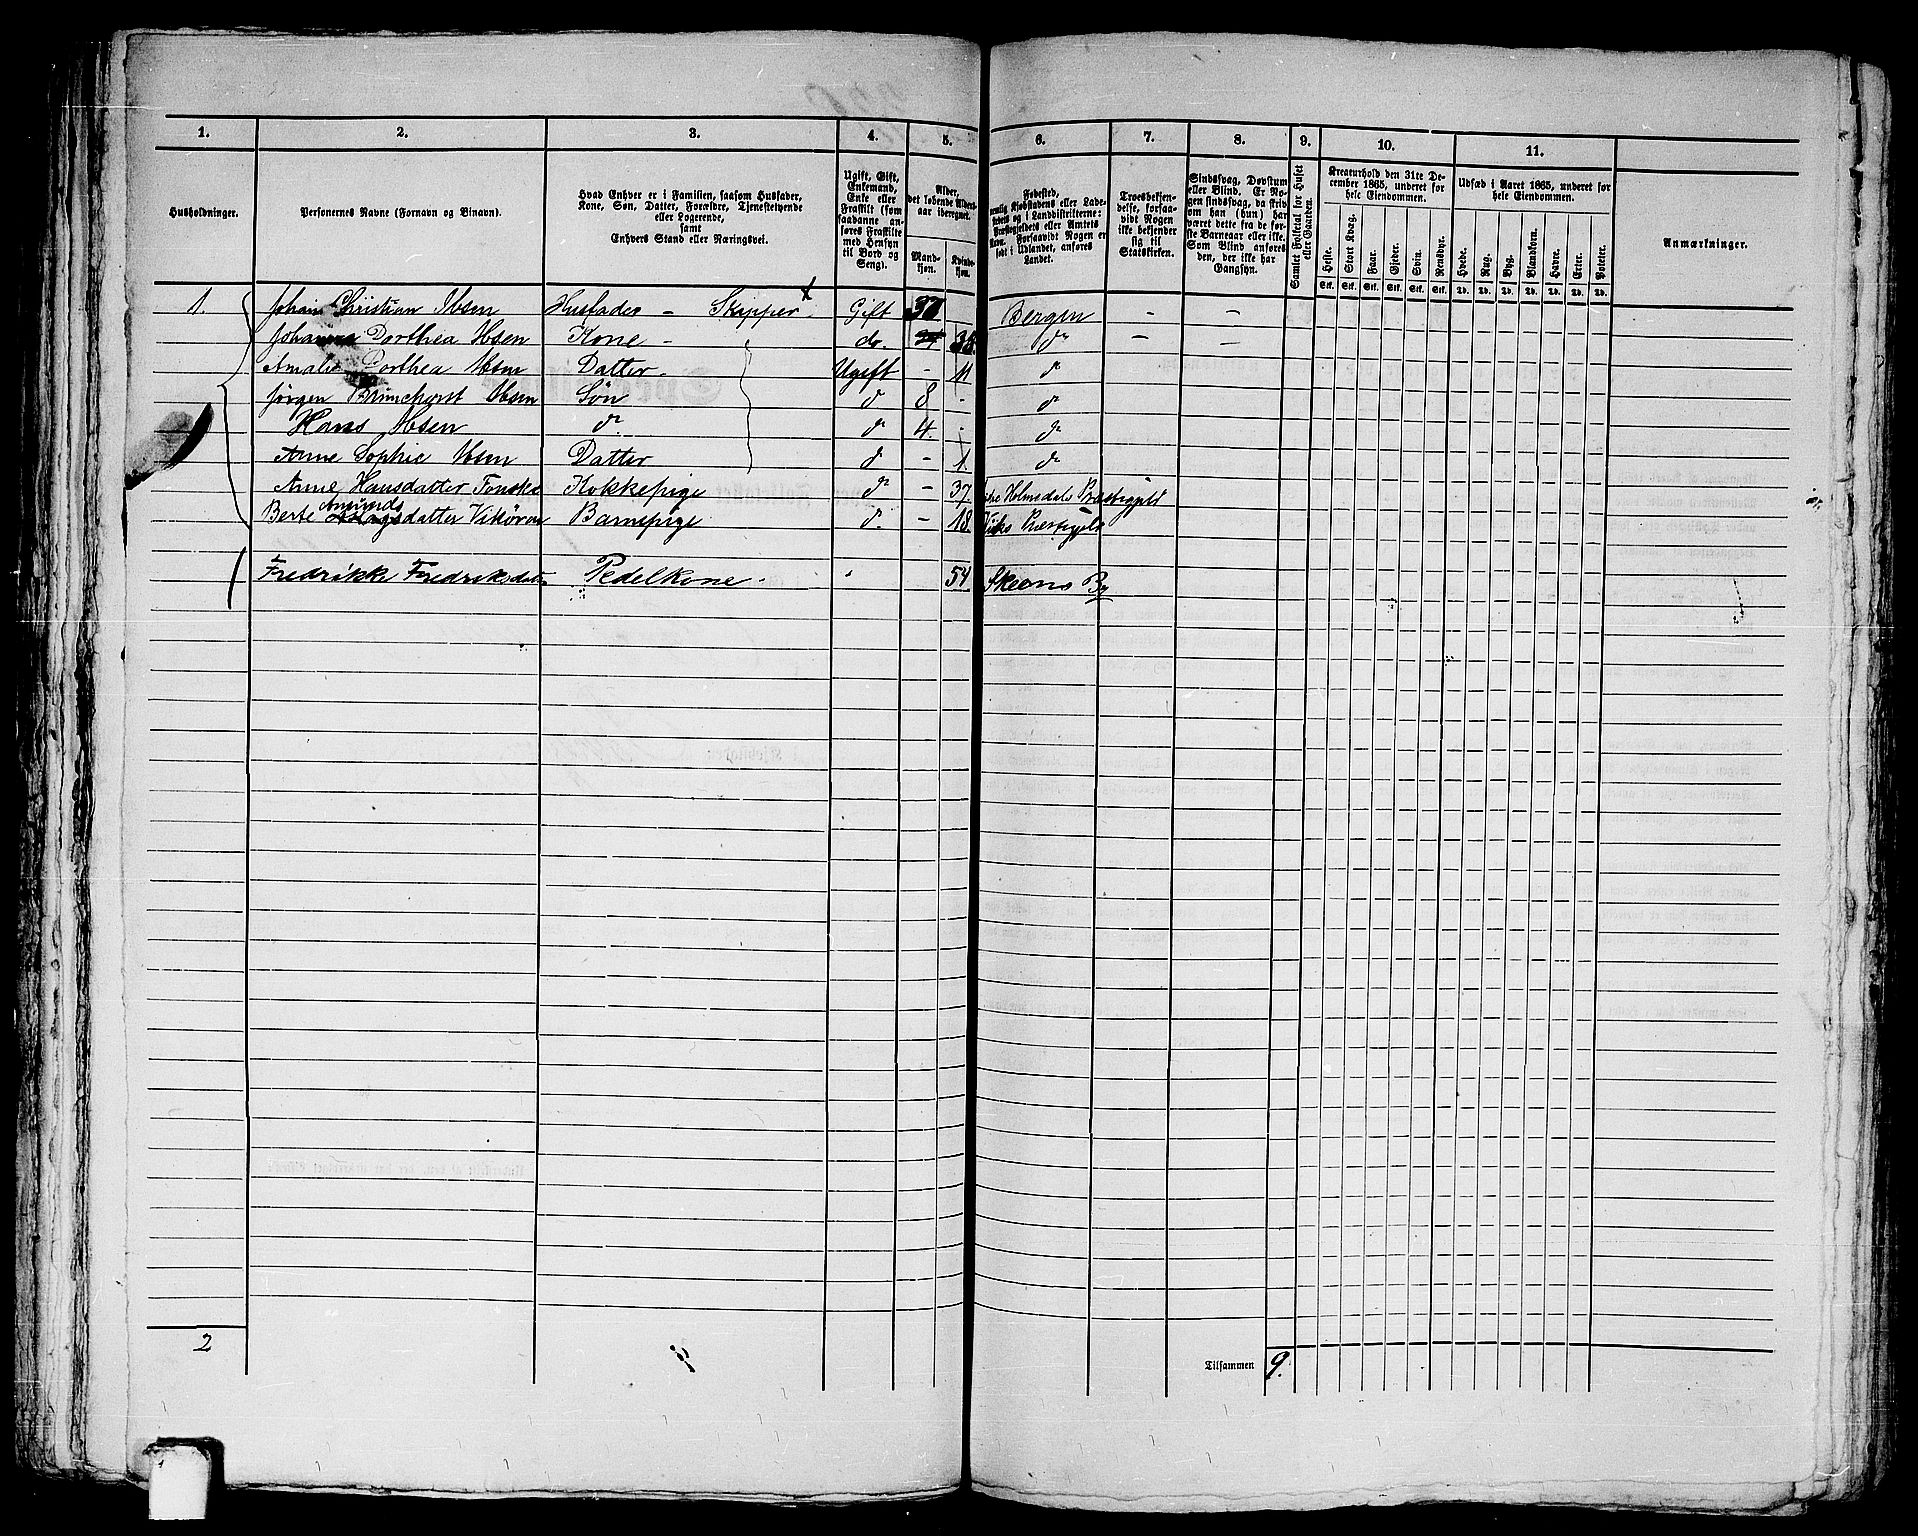 1. 2. 3. 4. 5. 6. 7. 8. 9. 10. 11.
Husholdninger.
Personernes Navne (Fornavn og Binavn).
Hvad Enhver er i Familien, saasom Husfader,
Kone, Søn, Datter, Forældre, Tjenestetyende
eller Logerende,
samt
Enhvers Stand eller Næringsvei.
Ugift, Gift,
Enkemand,
Enke eller
Fraskilt (som
saadanne an-
føres Fraskilte
med Hensyn
til Bord og
Seng).
Alder,
det løbende Alders-
aar iberegnet.
Mand-
kjøn.
Kvinde-
kjøn.
Fødested,
nemlig Kjøbstadens eller Lade-
stedets og i Landdistrikterne:
Præstegjeldets eller Amtets
Navn. Forsaavidt Nogen er
født i Udlandet, anføres
Landet.
Troesbekjen-
delse, forsaa-
vidt Nogen
ikke bekjender
sig til
Statskirken.
Sindssvag, Døvstum
eller Blind. Er No-
gen sindssvag, da skriv
om han (hun) har
været dette fra de før-
ste Barneaar eller ikke.
Som Blind anføres
den, der ikke har
Gangsyn.
Samlet Folketal for Huset
eller Gaarden.
Kreaturhold den 31te De-
cember 1865, underet for
hele Eiendommen.
Heste. Stort Kvæg. Faar. Gjeder. Svin. Rensdyr.
Stk. Stk. Stk. Stk. Stk. Stk.
Udsæd i Aaret 1865, underet for
hele Eiendommen.
Hvede. Rug. Byg. Blandkorn. Havre. Erter. Poteter.
Td. Td. Td. Td. Td. Td. Td.
Anmærkninger.
1. Johan Christian Ibsen Husfader - Skipper Gift Bergen - -
Johanna Dorthea Ibsen Kone - do. 35. do - -
Amalie Dorthea Ibsen Datter - Ugift - 11 do
Jørgen Brinchorst Ibsen Søn do 8 - do
Hans Ibsen do do 4. - do
Anne Sophie Ibsen Datter do - 1. do
Anne Hansdatter Kokkepige do - 37. Holmedals Præstegjeld
Berte Amunds datter Vikøren Barnepige do - 18. Viks Præstegjeld
Fredrikke Fredriksdatter Pedelkone 54 Skeens By
2
9
Tilsammen 9.